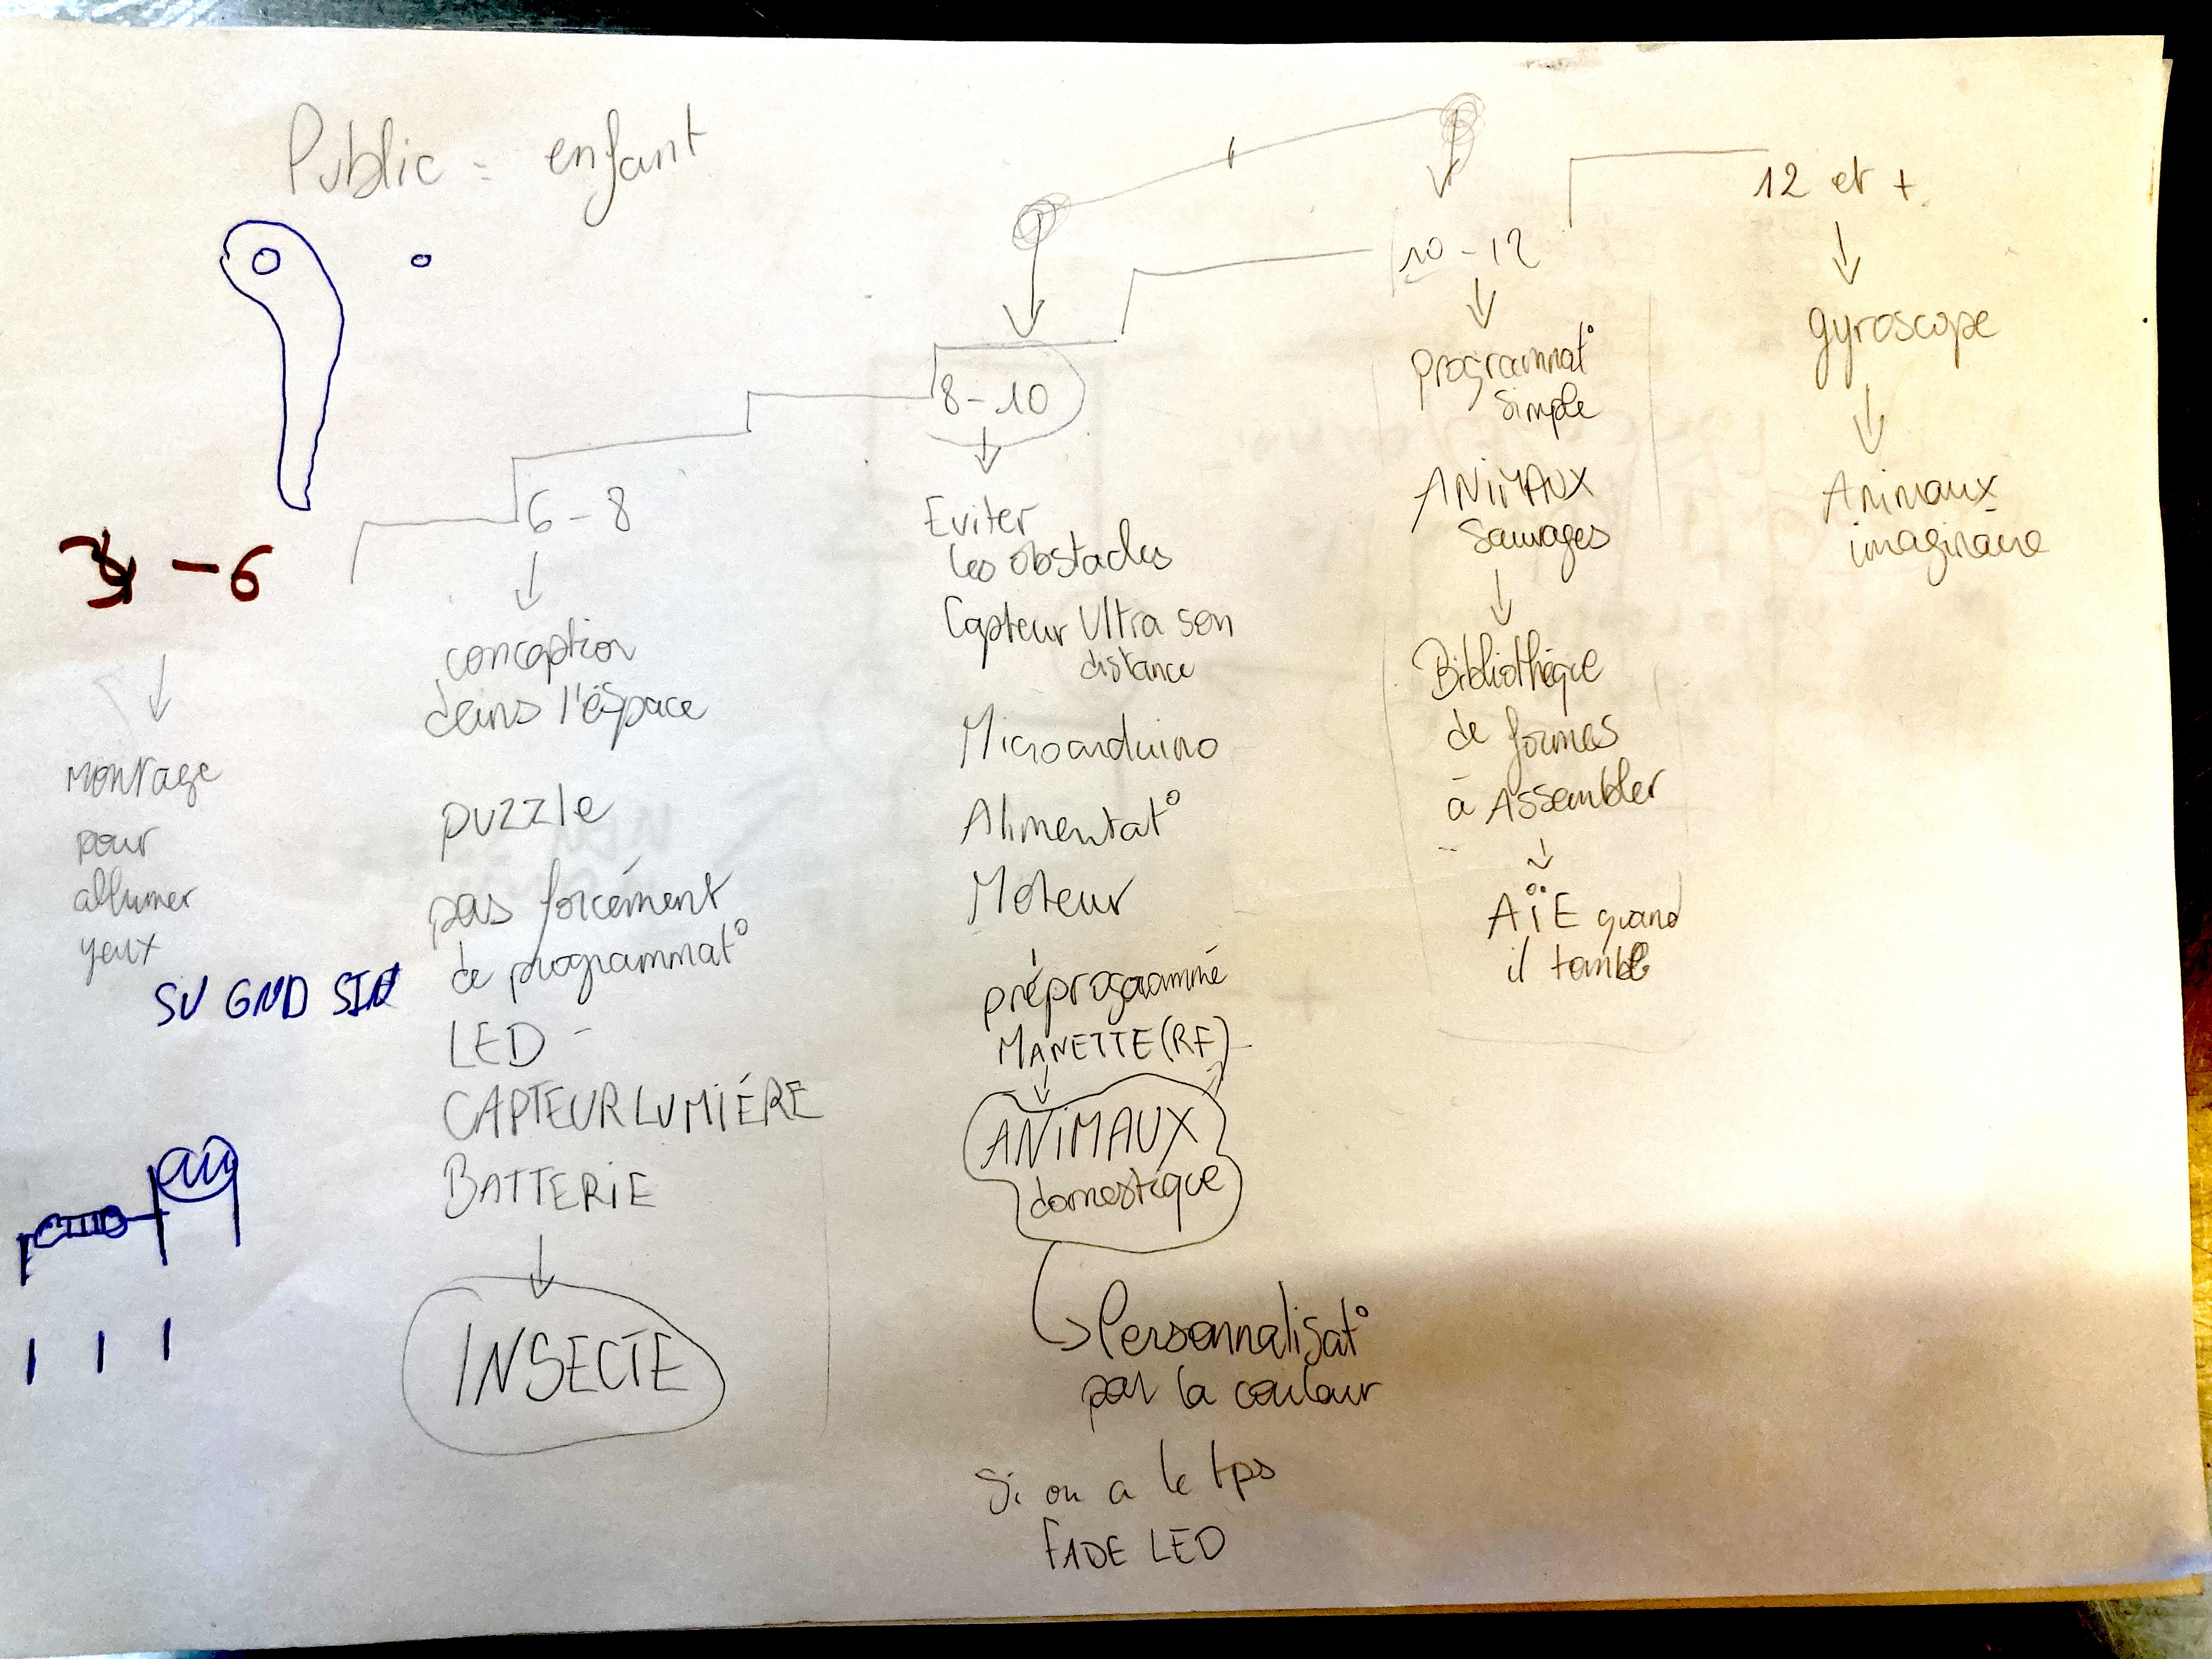 Public = enfant
-6
montage
pour
allumer
yeux
5V GND
6 - 8
conception
dans l'éspace
puzzle
pas forcément
de programmat°
LED -
CAPTEUR LUMIÉRE
BATTERIE
INSECTE
8 - 10
Eviter
les obstacles
Capteur Ultra son
distance
Microarduino
Alimentat°
Moteur
préprogrammé
MANETTE (RF)
ANIMAUX
domestique
Personnalisat°
par la couleur
Si on a le tps
FADE LED
10 - 12
programmat°
simple
ANIMAUX
Sauvages
Bibliothèque
de formes
à Assembler
AÏE quand
il tombe
12 et +
gyroscope
Animaux
imaginaire